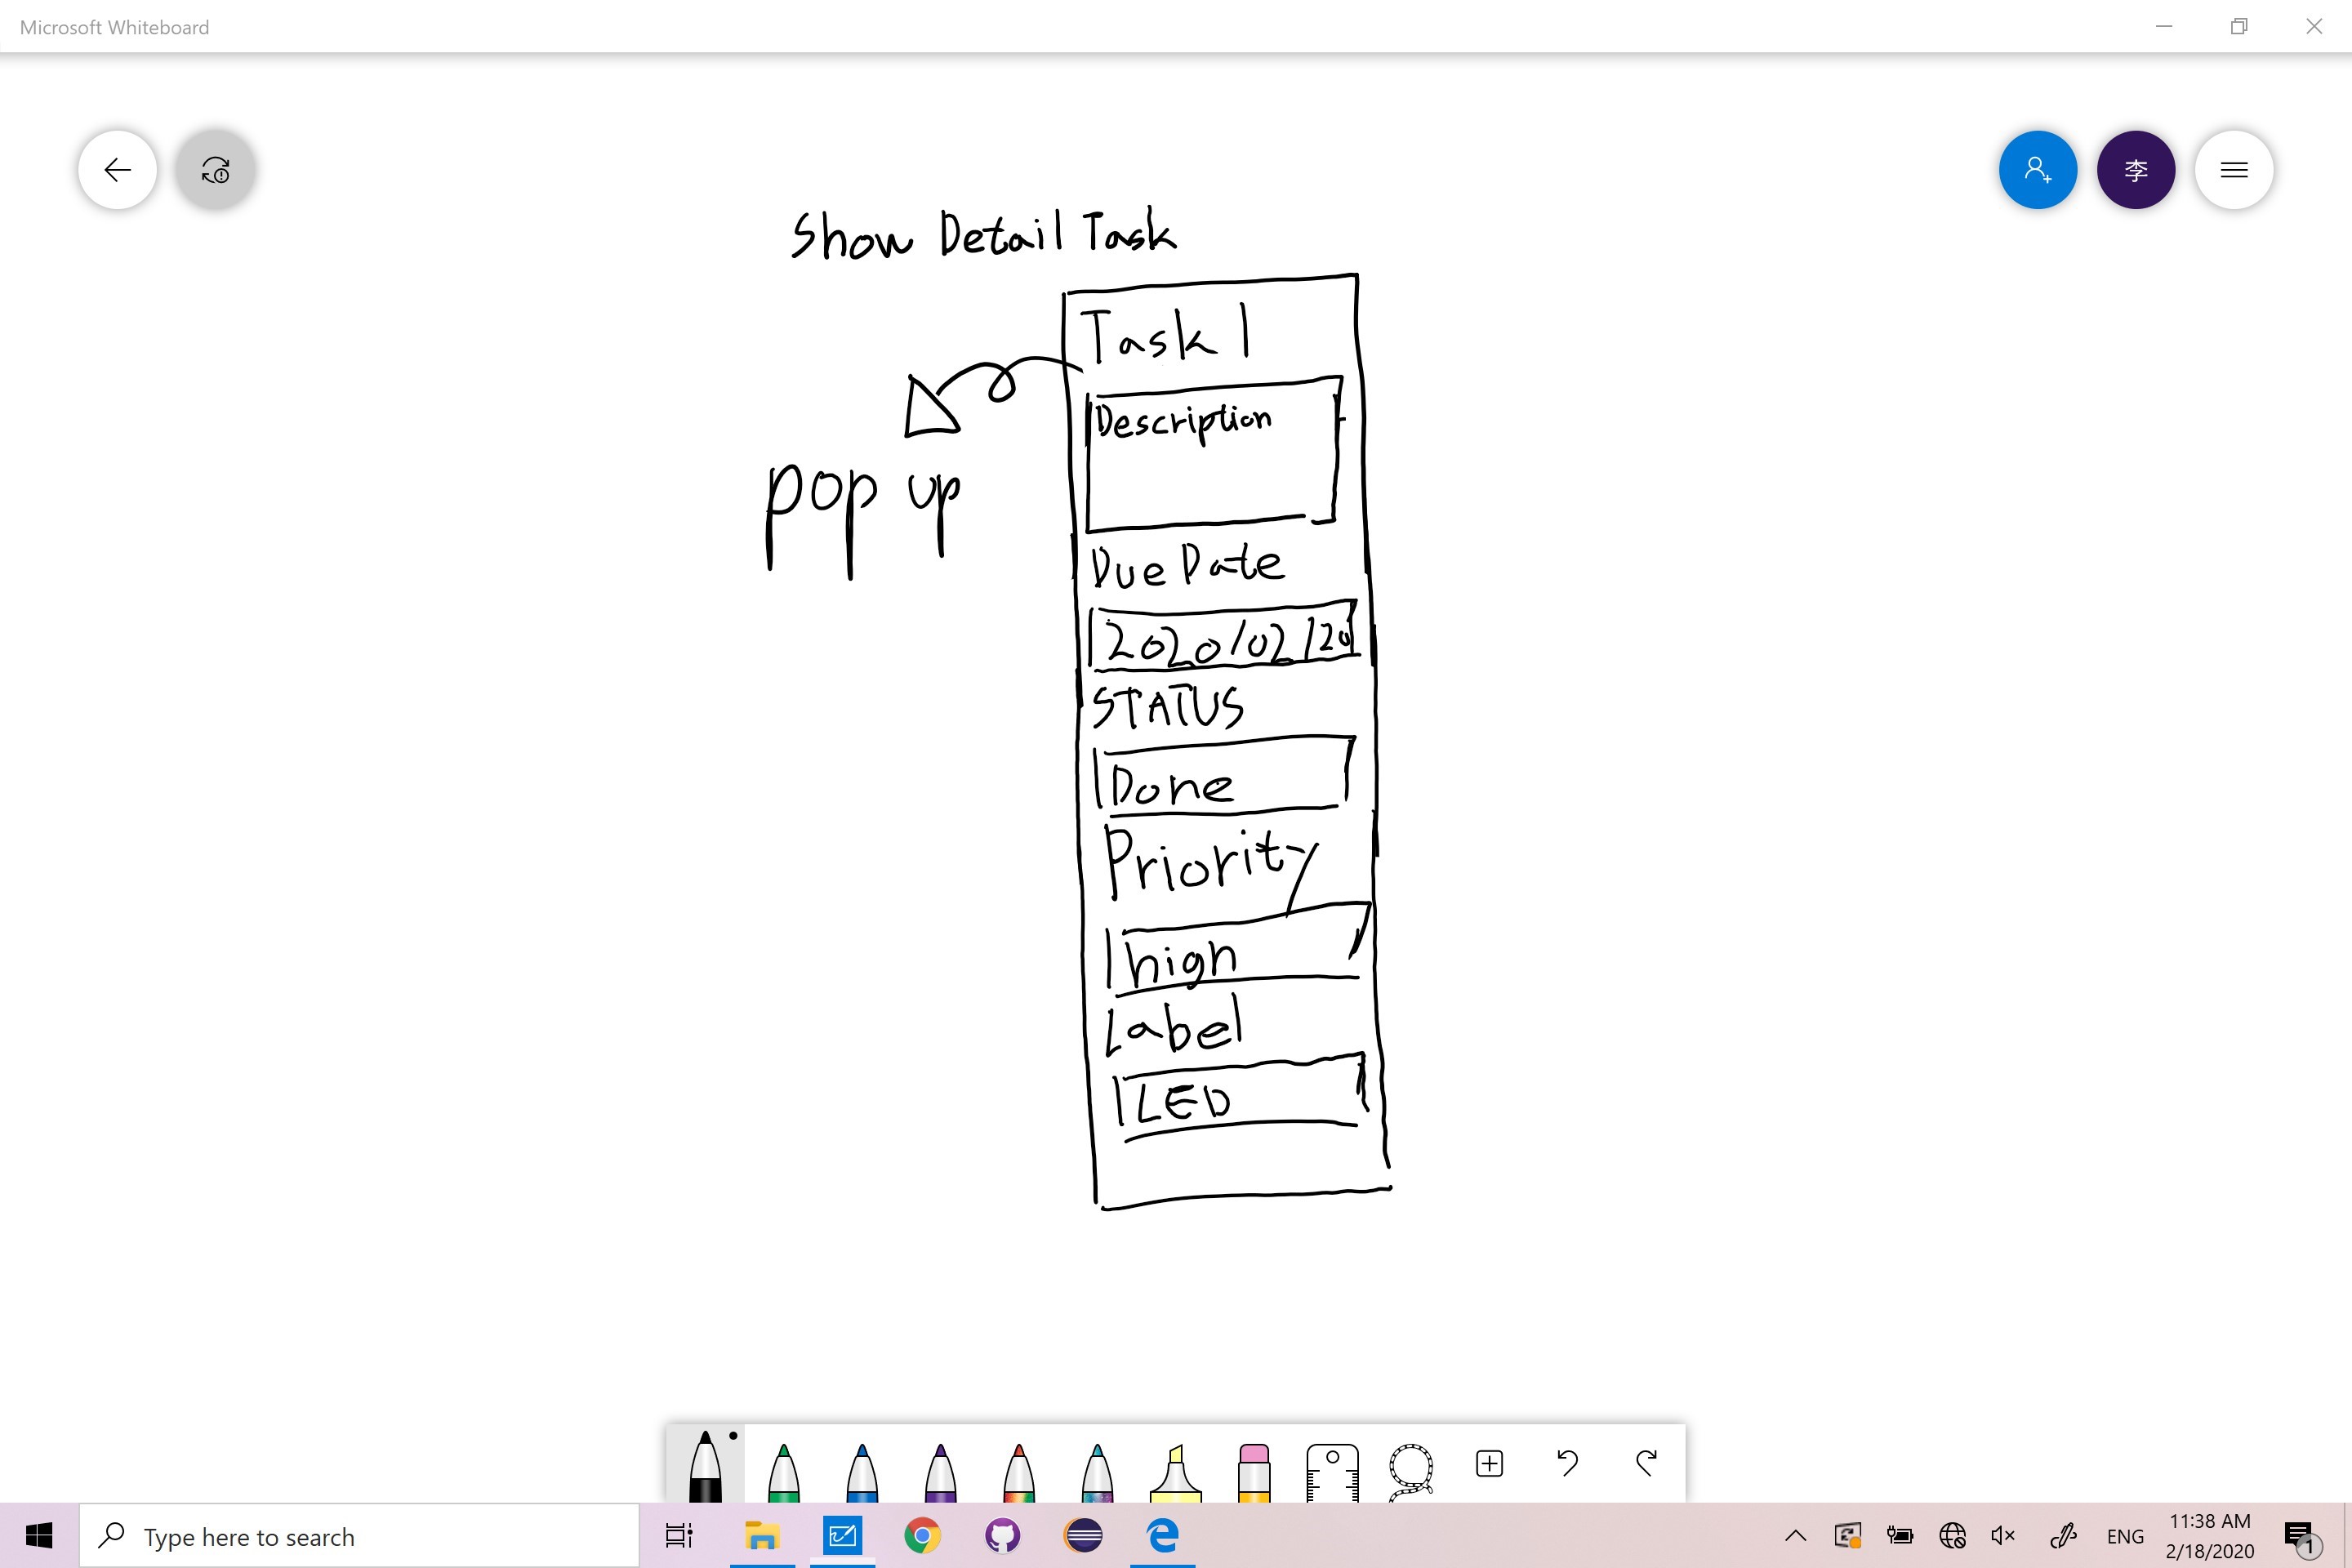 Microsoft Whiteboard
李
Show Detail Task
Task 1
Description
pop up
Due Date
2020/02/20
STATUS
Done
Priority
high
Label
LED
Type here to search
ENG
11:38 AM
2/18/2020
1